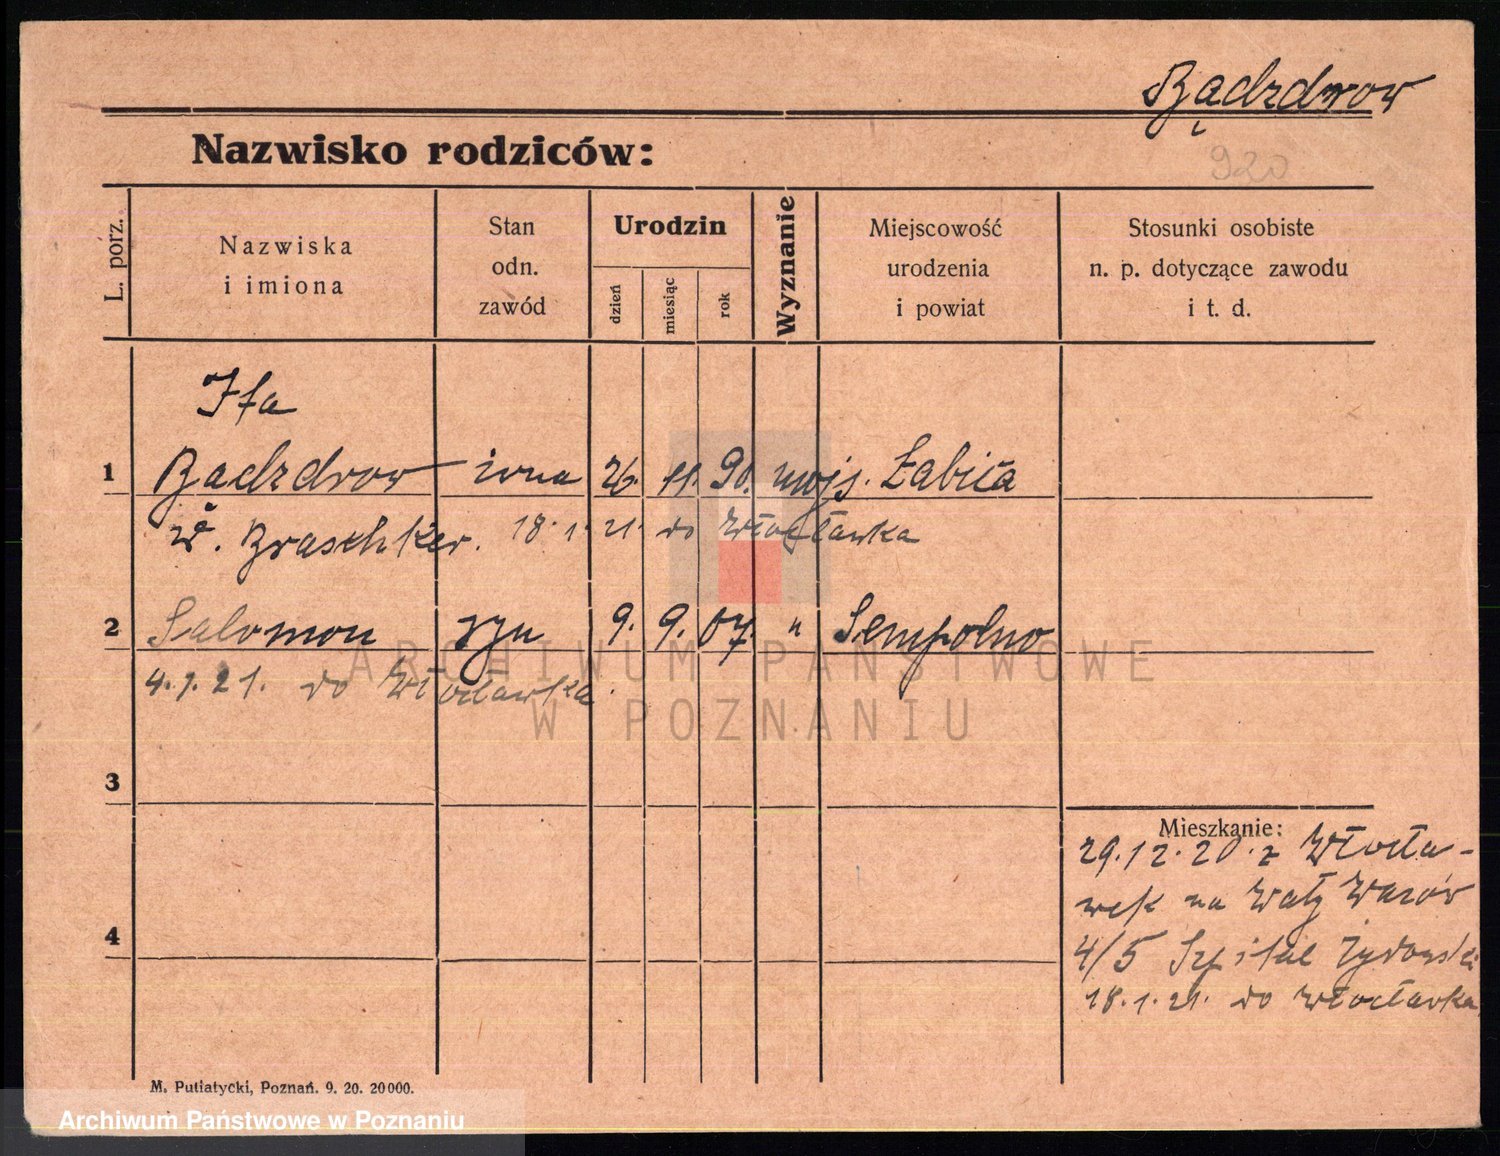 Bądzdrow
920
Nazwisko rodziców:
L. porz.
Nazwiska
i imiona
Stan
odn.
zawód
Urodzin
dzień
miesiąc
rok
Wyznanie
Miejscowość
urodzenia
i powiat
Stosunki osobiste
n. p. dotyczące zawodu
i t. d.
1
Bądzdrow 26. 11. 90. mojż.
Braschker. 18.1.21. do Włocławka
2 Salomon syn 9. 9. 07. " Sempolno
4.1.21. do Włocławka
3
4
Mieszkanie:
29.12.20. z Włocła-
wek na Wały Wazów
4/5 Szpital Żydowski
18.1.21. do Włocławka
M. Putiatycki, Poznań. 9. 20. 20 000.
ARCHIWUM PAŃSTWOWE
W POZNANIU
Archiwum Państwowe w Poznaniu